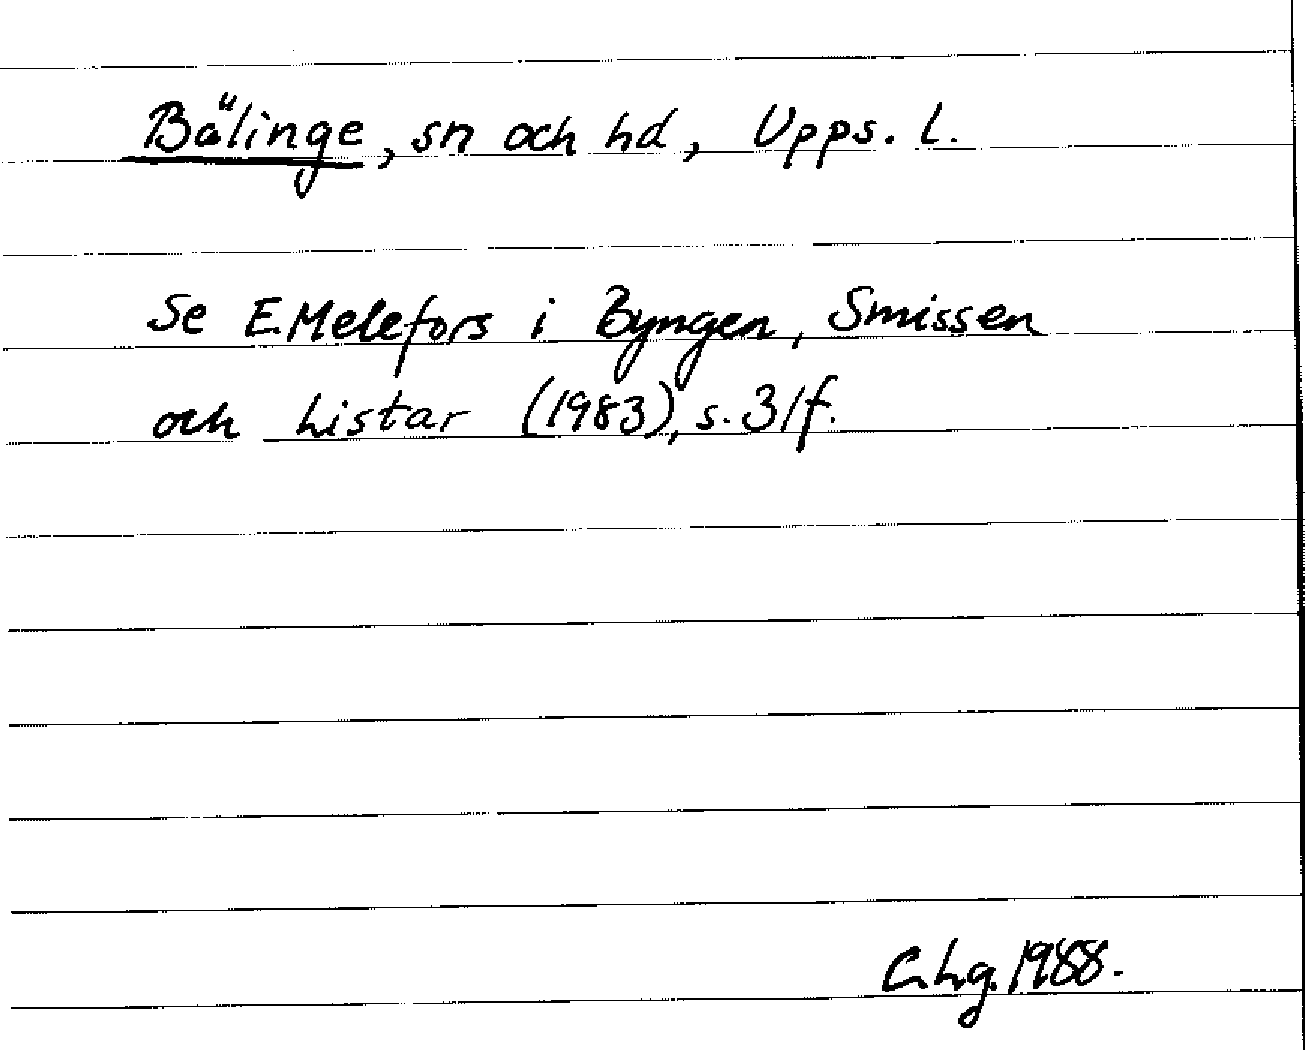 Bälinge, sn och hd, Upps. L.
Se E. Melefors i Byngen, Smissen
och Listar (1983), s. 31f.
C. Lg. 1988.